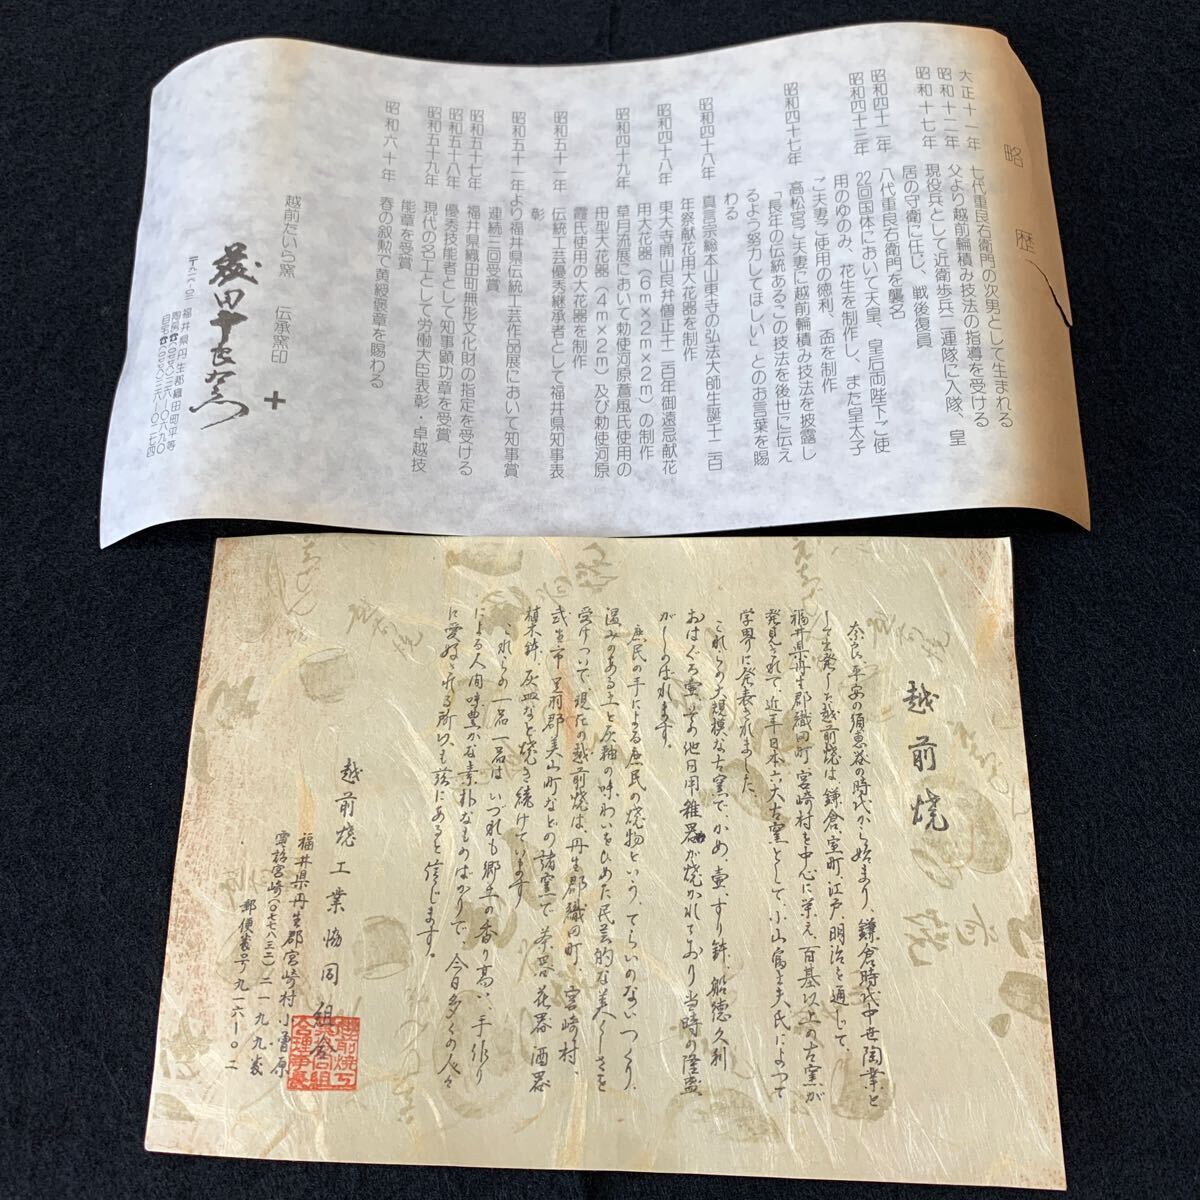 略歴
大正十一年 七代重良右衛門の次男として生まれる
昭和十二年 父より越前輪積み技法の指導を受ける
昭和十七年 現役兵として近衛歩兵二連隊に入隊、皇
居の守衛に任じ、戦後復員
昭和四十二年 八代重良右衛門を襲名
昭和四十三年 22回国体において天皇、皇后両陛下ご使
用のゆのみ、花生を制作し、また皇太子
ご夫妻ご使用の徳利、盃を制作
昭和四十七年 高松宮ご夫妻に越前輪積み技法を披露し
「長年の伝統あるこの技法を後世に伝え
るよう努力してほしい」とのお言葉を賜
わる
昭和四十八年 真言宗総本山東寺の弘法大師生誕千二百
年祭献花用大花器を制作
昭和四十八年 東大寺開山良弁僧正千二百年御遠忌献花
用大花器(6m×2m×2m)の制作
昭和四十九年 草月流展において勅使河原蒼風氏使用の
舟型大花器(4m×2m)及び勅使河原
霞氏使用の大花器を制作
昭和五十一年 伝統工芸優秀継承者として福井県知事表
彰
昭和五十一年より福井県伝統工芸作品展において知事賞
連続三回受賞
昭和五十七年 福井県織田町無形文化財の指定を受ける
昭和五十八年 優秀技能者として知事顕功章を受賞
昭和五十九年 現代の名工として労働大臣表彰・卓越技
能章を受賞
昭和六十年 春の叙勲で黄綬褒章を賜わる
越前たいら窯 伝承窯印
藤田重良右エ門 +
福井県丹生郡織田町平等
越前焼
奈良、平安の須恵器の時代から始まり、鎌倉時代中世陶業と
して出発した越前焼は、鎌倉、室町、江戸、明治を通して、
福井県丹生郡織田町、宮崎村を中心に栄え、百基以上の古窯が
発見されて、近年日本六大古窯として、小山富士夫氏によつて
学界に発表されました。
これらの大規模な古窯で、かめ、壷、すり鉢、船徳久利
おはぐろ壷、その他日用雑器が焼かれており当時の隆盛
がしのばれます。
庶民の手による庶民の焼物という、てらいのないつくり、
温みのある土と灰釉の味わいをひめた民芸的な美しさを
受けついで、現在の越前焼は、丹生郡織田町、宮崎村、
武生市、足羽郡美山町などの諸窯で、茶器、花器、酒器
植木鉢、灰皿など焼き続けています
これらの一品一品は、いづれも郷土の香り高い、手作り
による人間味豊かな素朴なものばかりで、今日多くの人々
に愛好される所以も茲にあると信じます。
越前焼工業協同組合
福井県丹生郡宮崎村小曽原
電話宮崎(〇七七八三二)二一九九番
郵便番号九一六ー〇二
越前焼工
業協同組
合理事長